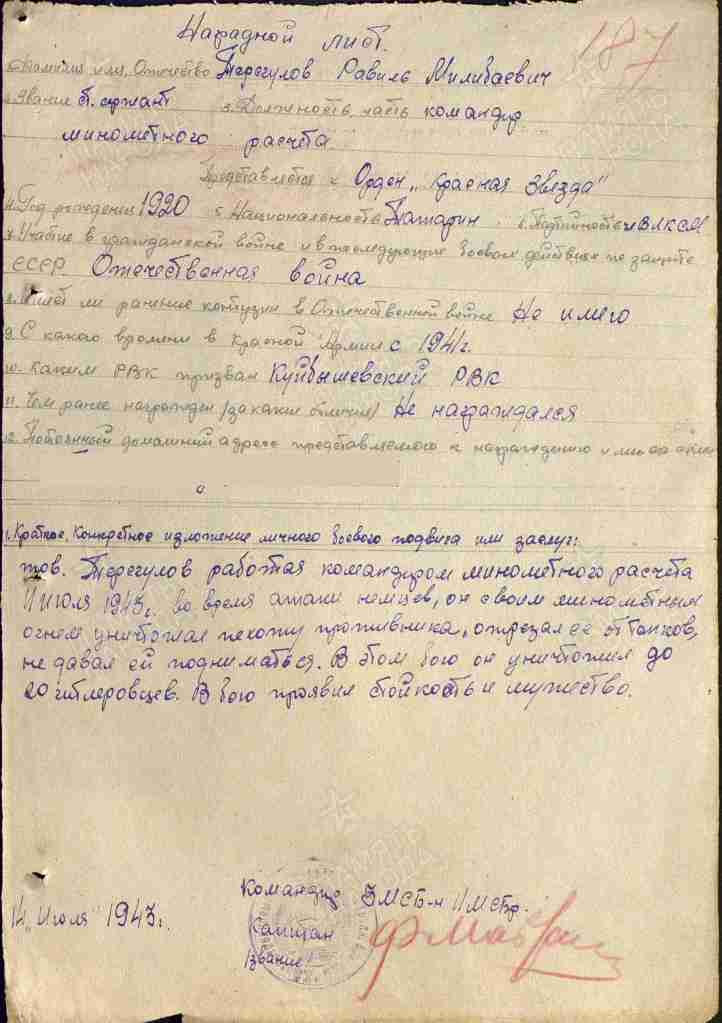 Нарадной лист.
187
1. Фамилия, имя, Отчество Терегулов Равиль Милибаевич
2. Звание ст. сержант 3. Должность, часть командир
минометного расчета
Представляется к Орден „Красная Звезда"
4. Год рождения 1920 5. Национальность Татарин. 6. Партийность чл ВЛКСМ
7. Участие в гражданской войне и в последующие боевых действиях по защите
СССР Отечественная война
8. Имеет ли ранение контузии в Отечественной войне Не имеет
9. С какого времени в Красной Армии с 1941г.
10. Каким РВК призван Куйбышевский РВК
11. Чем ранее награжден (за какие отличия) Не награждался
12. домашний адресс представляемого к награждению и
1. Краткое, конкретное изложение личного боевого подвига или заслуг:
тов. Терегулов работая командиром минометного расчета
11 июля 1943г. во время атаки немцев, он своим минометным
огнем уничтожал пехоту противника, отрезал ее от танков,
не давал ей подниматься. В этом бою он уничтожил до
20 гитлеровцев. В бою проявил стойкость и мужество.
Командир 3МСБ-н 11МСбр.
14 „Июля" 1943г.
Капитан
(звание)